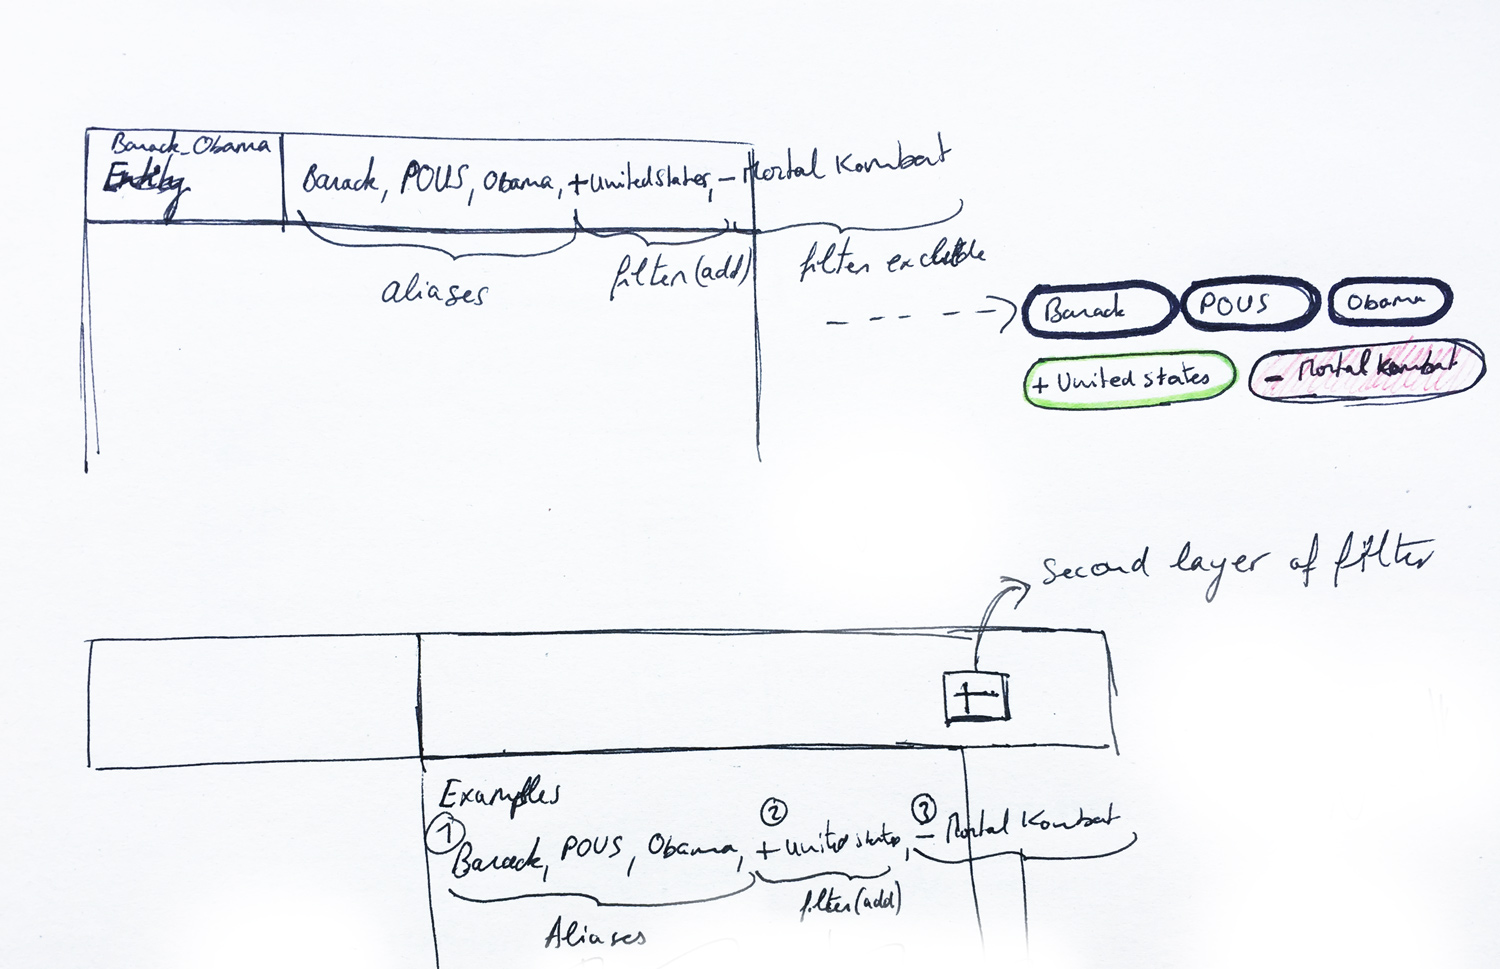 Barack_Obama
Entity
Barack, POUS, Obama, +United States, - Mortal Kombat
aliases
filter (add)
filter exclude
Barack
POUS
Obama
+ United States
- Mortal Kombat
Second layer of filter
+
Examples
1 2 3
Barack, POUS, Obama, + United States, - Mortal Kombat
filter (add)
Aliases